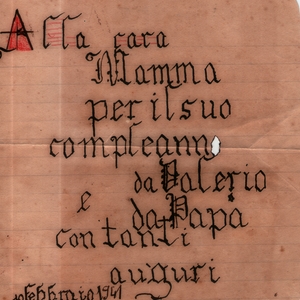 Alla cara
Mamma
per il suo
compleanno
da Valerio
e da Papà
con tanti
auguri
Febbraio 1941